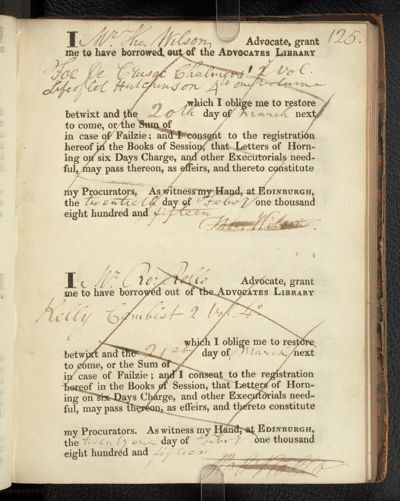 125.
I Mr. Tho. Wilson Advocate, grant
me to have borrowed out of the Advocates Library
Chalmers 2 Vol.
Life of Col Hutchinson 4to one Volume
which I oblige me to restore
betwixt and the 20th day of March next
to come, or the Sum of
in case of Failzie; and I consent to the registration
hereof in the Books of Session, that Letters of Horn-
ing on six Days Charge, and other Executorials need-
ful, may pass thereon, as effeirs, and thereto constitute
my Procurators. As witness my Hand, at Edinburgh,
the twentieth day of Febry one thousand
eight hundred and fifteen
Thos. Wilson.
I Mr. Ro: Rollo Advocate, grant
me to have borrowed out of the Advocates Library
Kelly Cambist 2 Vol 4o
which I oblige me to restore
betwixt and the 21st day of March next
to come, or the Sum of
in case of Failzie; and I consent to the registration
hereof in the Books of Session, that Letters of Horn-
ing on six Days Charge, and other Executorials need-
ful, may pass thereon, as effeirs, and thereto constitute
my Procurators. As witness my Hand, at Edinburgh,
the twenty one day of Febry one thousand
eight hundred and fifteen
Rollo